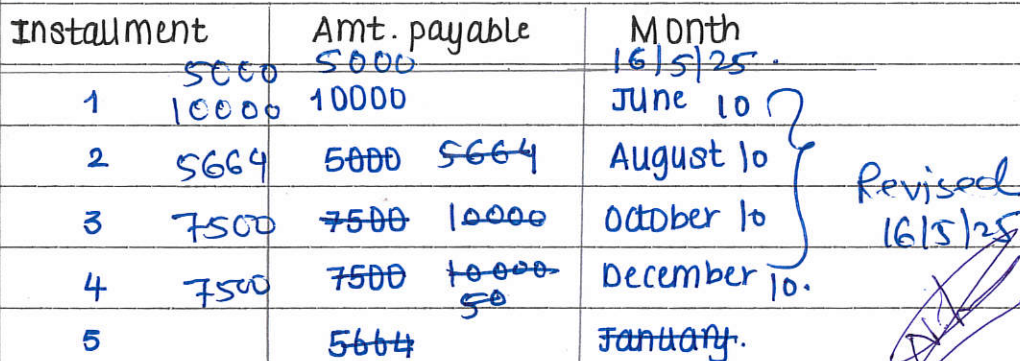 Installment Amt. payable Month
5000 5000 16/5/25.
1 10000 10000 June 10
2 5664 5000 5664 August 10
Revised
3 7500 7500 10000 October 10
16/5/25
4 7500 7500 10000 December 10.
50
5 5664 January.